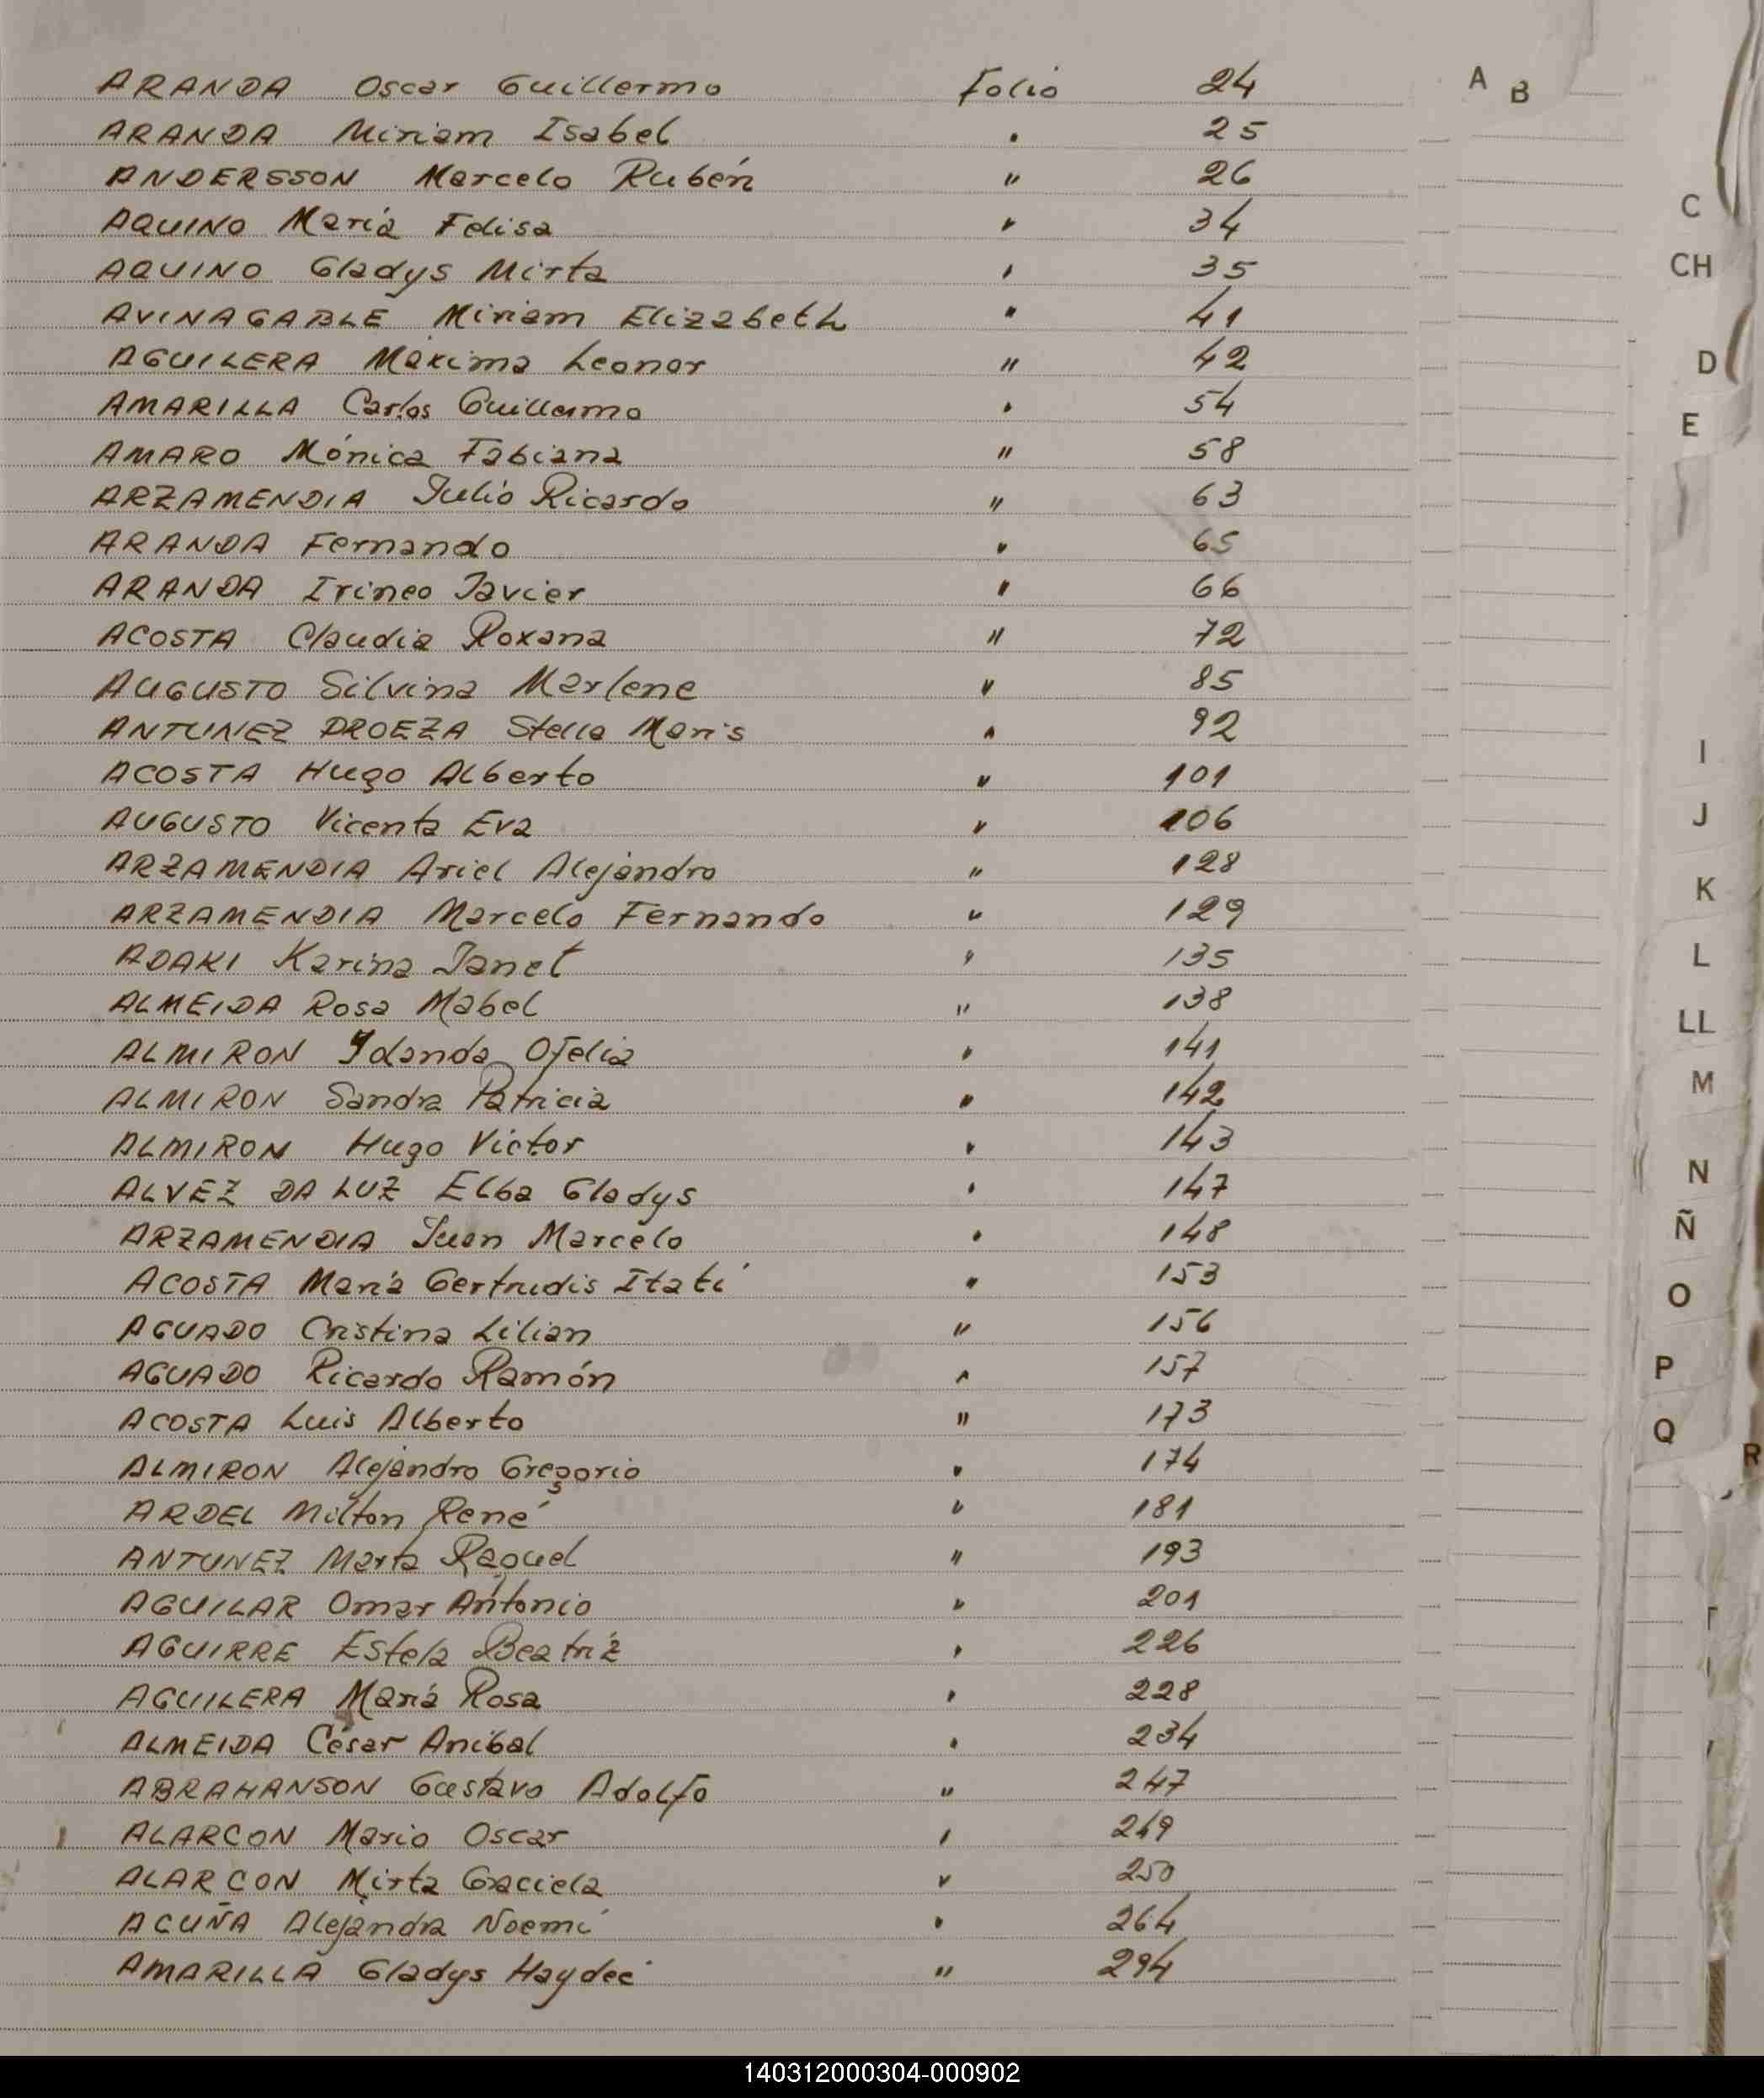 ARANDA Oscar Guillermo Folio 24
ARANDA Miriam Isabel " 25
ANDERSSON Marcelo Rubén " 26
AQUINO María Felisa " 34
AQUINO Gladys Mirta " 35
AVINAGABLE Miriam Elizabeth " 41
AGUILERA Máxima Leonor " 42
AMARILLA Carlos Guillermo " 54
AMARO Mónica Fabiana " 58
ARZAMENDIA Julio Ricardo " 63
ARANDA Fernando " 65
ARANDA Irineo Javier " 66
ACOSTA Claudia Roxana " 72
AUGUSTO Silvina Marlene " 85
ANTUNEZ PROEZA Stella Maris " 92
ACOSTA Hugo Alberto " 101
AUGUSTO Vicenta Eva " 106
ARZAMENDIA Ariel Alejandro " 128
ARZAMENDIA Marcelo Fernando " 129
ADAKI Karina Janet " 135
ALMEIDA Rosa Mabel " 138
ALMIRON Ofelia " 141
ALMIRON Sandra Patricia " 142
ALMIRON Hugo Victor " 143
ALVEZ DA LUZ Elba Gladys " 147
ARZAMENDIA Juan Marcelo " 148
ACOSTA María Gertrudis Itatí " 153
AGUADO Cristina Lilian " 156
AGUADO Ricardo Ramón " 157
ACOSTA Luis Alberto " 173
ALMIRON Alejandro Gregorio " 174
ARDEL Milton René " 181
ANTUNEZ Marta Raquel " 193
AGUILAR Omar Antonio " 201
AGUIRRE Estela Beatriz " 226
AGUILERA María Rosa " 228
ALMEIDA César Anibal " 234
ABRAHANSON Gustavo Adolfo " 247
ALARCON Mario Oscar " 249
ALARCON Mirta Graciela " 250
ACUÑA Alejandra Noemí " 264
AMARILLA Gladys Haydeé " 294
A B
C
CH
D
E
I
J
K
L
LL
M
N
Ñ
O
P
Q
R
140312000304-000902